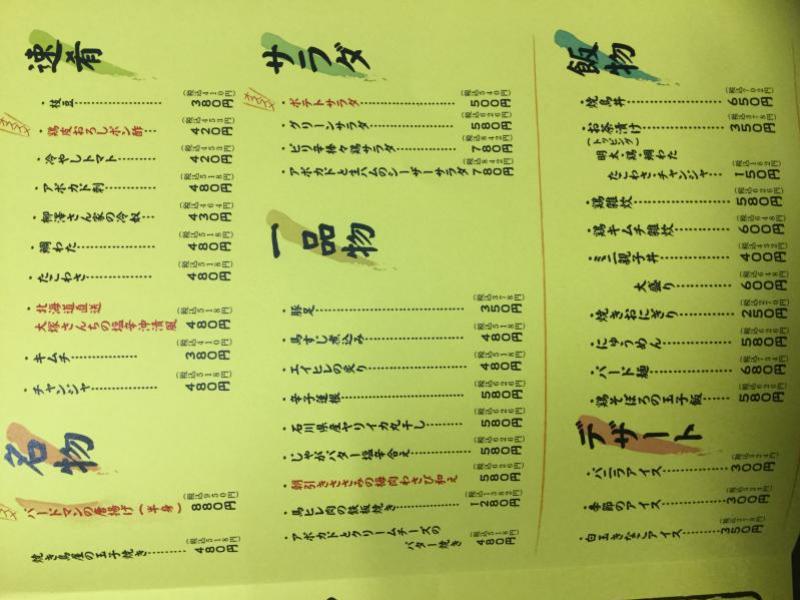 速肴
・枝豆 (税込410円) 380円
・鶏皮おろしポン酢 (税込453円) 420円
・冷やしトマト (税込453円) 420円
・アボカド刺 (税込518円) 480円
・柳澤さん家の冷奴 (税込464円) 430円
・鯛わた (税込518円) 480円
・たこわさ (税込518円) 480円
・北海道直送
大塚さんちの塩辛沖漬風 (税込518円) 480円
・キムチ (税込410円) 380円
・チャンジャ (税込518円) 480円
名物
・バードマンの唐揚げ(半身) (税込950円) 880円
焼き鳥屋の玉子焼き (税込518円) 480円
サラダ
・ポテトサラダ (税込540円) 500円
・グリーンサラダ (税込626円) 580円
・ピリ辛棒々鶏サラダ (税込842円) 780円
・アボカドと生ハムのシーザーサラダ (税込842円) 780円
一品物
・豚足 (税込378円) 350円
・馬すじ煮込み (税込518円) 480円
・エイヒレの炙り (税込518円) 480円
・辛子蓮根 (税込626円) 580円
・石川県産ヤリイカ丸干し (税込626円) 580円
・じゃがバター塩辛合え (税込626円) 580円
・朝引きささみの梅肉わさび和え (税込626円) 580円
・馬ヒレ肉の鉄板焼き (税込1382円) 1280円
・アボカドとクリームチーズの
バター焼き (税込518円) 480円
飯物
・焼鳥丼 (税込702円) 650円
・お茶漬け (税込378円) 350円
(トッピング)
明太・鶏・鯛わた
たこわさ・チャンジャ (税込162円) 150円
・鶏雑炊 (税込626円) 580円
・鶏キムチ雑炊 (税込648円) 600円
・ミニ親子丼 (税込432円) 400円
大盛り (税込648円) 600円
・焼きおにぎり (税込270円) 250円
・にゅうめん (税込626円) 580円
・バード麺 (税込734円) 680円
・鶏そぼろの玉子飯 (税込626円) 580円
デザート
・バニラアイス (税込324円) 300円
・季節のアイス (税込324円) 300円
・白玉きなこアイス (税込378円) 350円